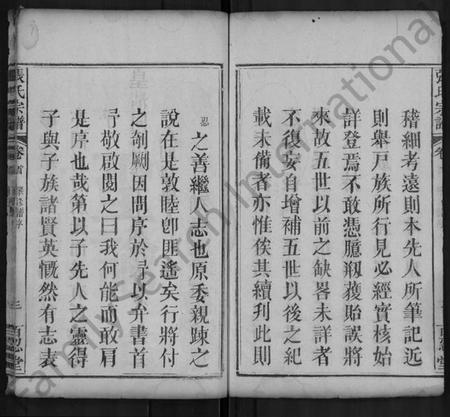 張氏宗譜
稽細考遠則本先人所筆記近
則舉戸族所行見必經實核始
詳登焉不敢憑臆剏獲貽誤將
來故五世以前之缺畧未詳者
不復妄自增補五世以後之紀
載未備者亦惟俟其續刋此則
忍
之善繼人志也原委親踈之
說在是敦睦卽匪遙矣行將付
之剞劂因問序於予以弁書首
予敬啟閱之曰我何能而敢肩
是序也哉第以子先人之靈得
子與子族諸賢英慨然有志表
張氏宗譜 卷首
三
百忍堂
FamilySearch International